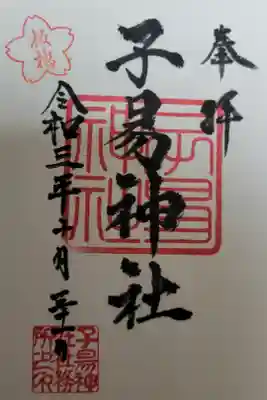 奉拝
子易神社
子易神社
令和三年十月
子易神社社務所之印